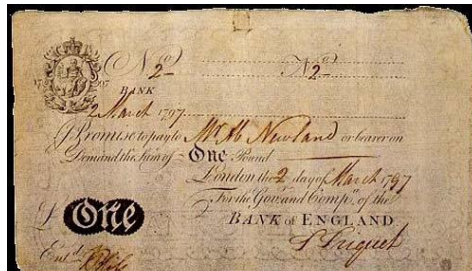 No 2 No 2
17 97
BANK
2 March 1797
I Promise to pay to Mr Ab Newland or bearer on
Demand the Sum of One Pound
London the 2 day of March 1797
For the Govr and Compa of the
BANK of ENGLAND
£ One
Entd